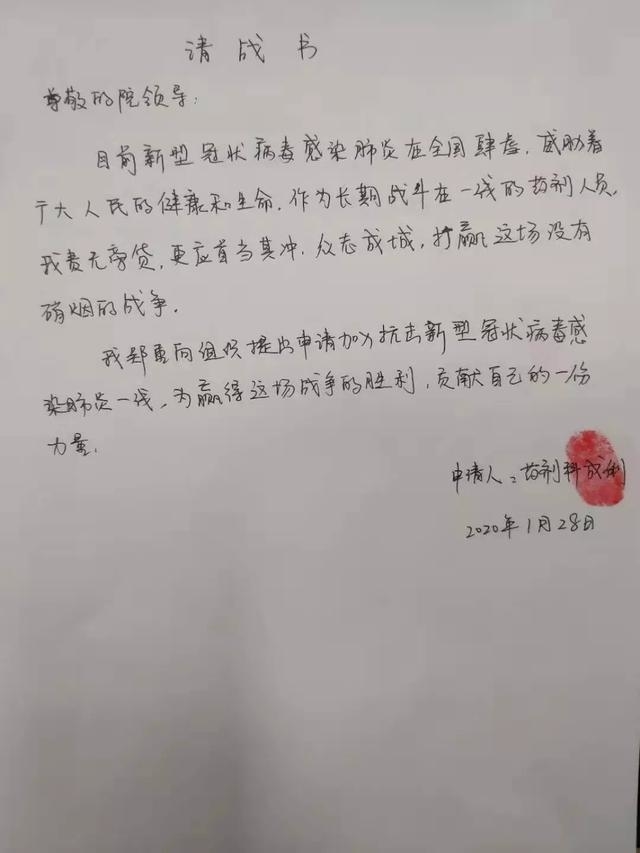 请战书
尊敬的院领导：
目前新型冠状病毒感染肺炎在全国肆虐，威胁着
广大人民的健康和生命，作为长期战斗在一线的药剂人员，
我责无旁贷，更应首当其冲，众志成城，打赢这场没有
硝烟的战争。
我郑重向组织提出申请加入抗击新型冠状病毒感
染肺炎一线，为赢得这场战争的胜利，贡献自己的一份
力量。
申请人：药剂科成利
2020年1月28日